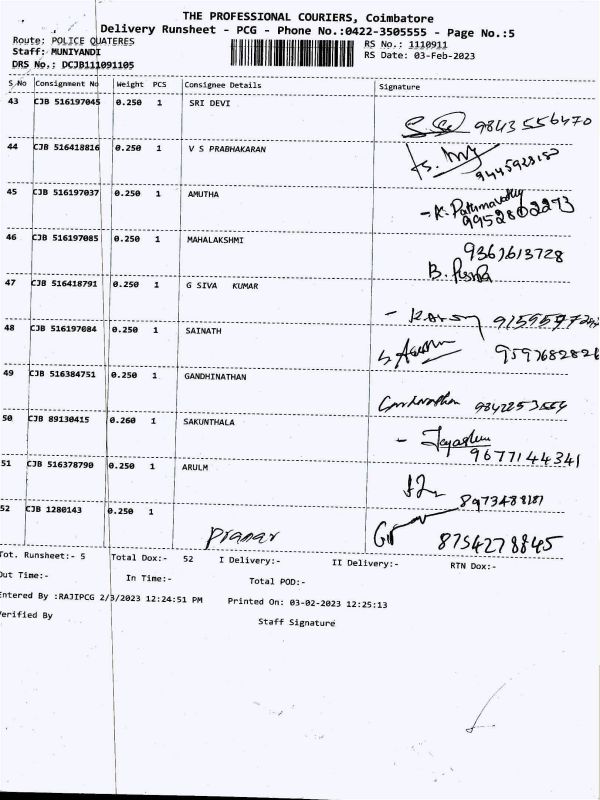 THE PROFESSIONAL COURIERS, Coimbatore
Delivery Runsheet - PCG - Phone No.:0422-3505555 - Page No.:5
Route: POLICE QUATERES RS No.: 1110911
Staff: MUNIYANDI RS Date: 03-Feb-2023
DRS No.: DCJB111091105
S.No Consignment No Weight PCS Consignee Details Signature
43 CJB 516197045 0.250 1 SRI DEVI
9843556470
44 CJB 516418816 0.250 1 V S PRABHAKARAN
45 CJB 516197037 0.250 1 AMUTHA
9952802273
46 CJB 516197085 0.250 1 MAHALAKSHMI
9361613728
47 CJB 516418791 0.250 1 G SIVA KUMAR
48 CJB 516197084 0.250 1 SAINATH
49 CJB 516384751 0.250 1 GANDHINATHAN
50 CJB 89130415 0.260 1 SAKUNTHALA
9677144341
51 CJB 516378790 0.250 1 ARULM
52 CJB 1280143 0.250 1
8754278845
Tot. Runsheet:- 5 Total Dox:- 52 I Delivery:- II Delivery:- RTN Dox:-
Out Time:- In Time:- Total POD:-
Entered By :RAJIPCG 2/3/2023 12:24:51 PM Printed On: 03-02-2023 12:25:13
Verified By Staff Signature